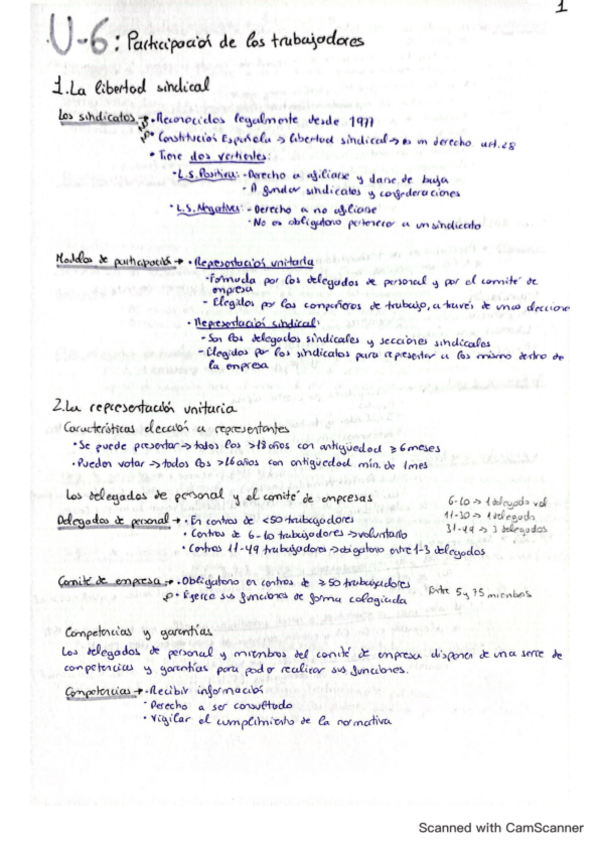 1
U-6: Participación de los trabajadores
1. La libertad sindical
Los sindicatos → • Reconocidos legalmente desde 1977
• Constitución Española → libertad sindical → es un derecho art. 28
• Tiene dos vertientes:
• L.S. Positiva: - Derecho a afiliarse y darse de baja
- A fundar sindicatos y confederaciones
• L.S. Negativa: - Derecho a no afiliarse
- No es obligatorio pertenecer a un sindicato
Modelos de participación → • Representación unitaria
- Formada por los delegados de personal y por el comité de
empresa
- Elegidos por los compañeros de trabajo, a través de unas eleccione
• Representación sindical:
- Son los delegados sindicales y secciones sindicales
- Elegidos por los sindicatos para representar a los mismo dentro de
la empresa
2. La representación unitaria
Características elección a representantes
• Se puede presentar → todos los >18 años con antigüedad ≥ 6 meses
• Pueden votar → todos los >16 años con antigüedad mín. de 1 mes
Los delegados de personal y el comité de empresas
6-10 → 1 delegado vol
11-30 → 1 delegado
31-49 → 3 delegados
Delegados de personal → • En centros de <50 trabajadores
• Centros de 6-10 trabajadores → voluntario
• Centros 11-49 trabajadores → obligatorio entre 1-3 delegados
Comité de empresa → • Obligatorio en centros de ≥ 50 trabajadores
• Ejerce sus funciones de forma colegiada
Entre 5 y 75 miembros
Competencias y garantías
Los delegados de personal y miembros del comité de empresa disponen de una serie de
competencias y garantías para poder realizar sus funciones.
Competencias → • Recibir información
• Derecho a ser consultado
• Vigilar el cumplimiento de la normativa
Scanned with CamScanner